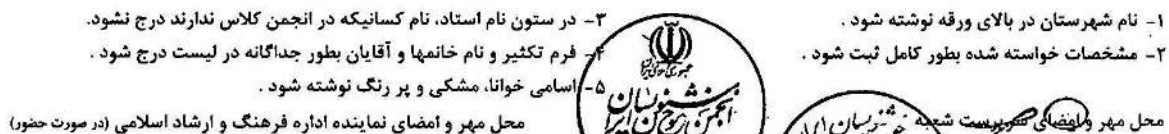 ۱- نام شهرستان در بالای ورقه نوشته شود .
۲- مشخصات خواسته شده بطور کامل ثبت شود .
۳- در ستون نام استاد، نام کسانیکه در انجمن کلاس ندارند درج نشود.
۴- فرم تکثیر و نام خانمها و آقایان بطور جداگانه در لیست درج شود .
۵- اسامی خوانا، مشکی و پر رنگ نوشته شود .
محل مهر و امضای سرپرست شعبه
محل مهر و امضای نماینده اداره فرهنگ و ارشاد اسلامی (در صورت حضور)
انجمن خوشنویسان ایران